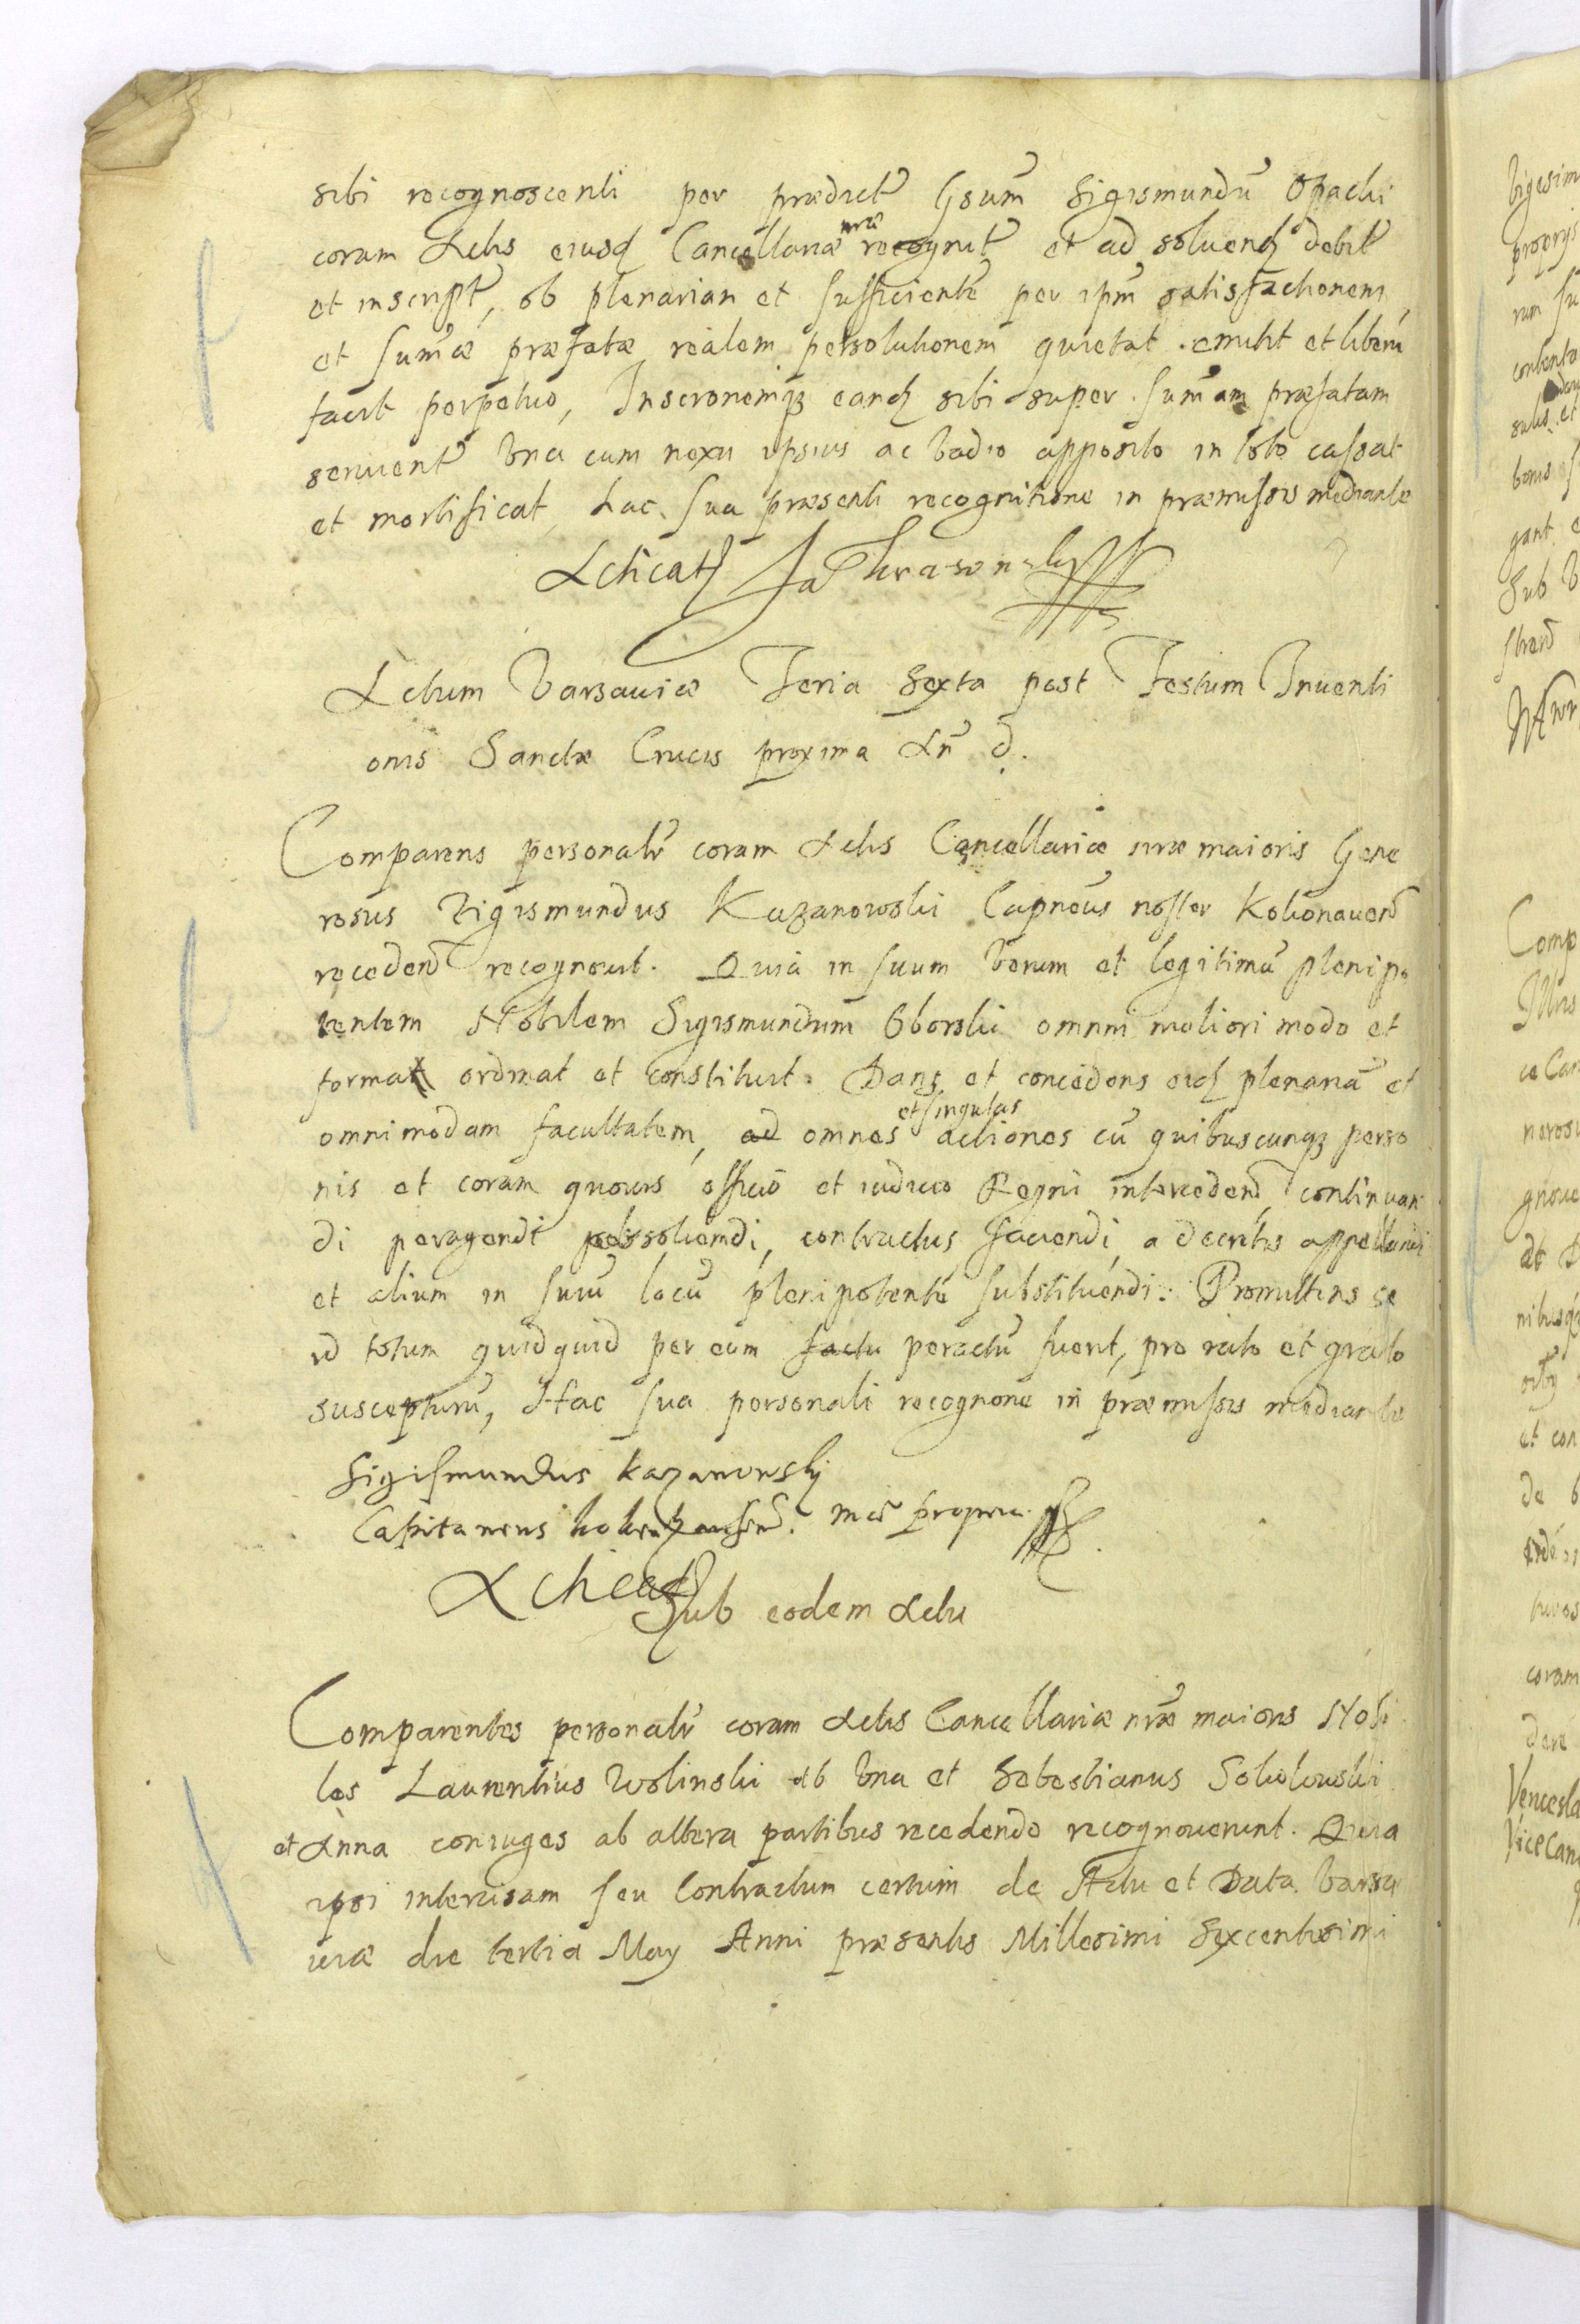 sibi recognoscenti per prædictū Gsum̄ Sigismundū Opacki
coram Actis eiusd Cancellariæ nræ recognit et ad soluend debit
et inscript, ob plenariam et sufficientē per ipm̄ satisfactionem
et sum̄æ præfatæ realem persolutionem quietat emittit et liberū
facit perpetuo, Inscronemqз eand sibi super sum̄am præfatam
seruient vna cum nexu ipsius ac vadio apposito in toto cassat
et mortificat, hac sua præsenti recognitione in præmissis mediante
Acticat
Actum Varsauiæ Feria Sexta post Festum Inuenti
onis Sanctæ Crucis proxima An̄ d.
Comparens personalr coram Actis Cancellariæ nræ maioris Gene
rosus Sigismundus Kazanowski Capneus noster Kokonauen
receden recognouit. Quia in suum verum et legitimū plenipo
tentem Nobilem Sigismundum Oborski omni meliori modo et
forma ordinat et constituit. Dans et concedens eid plenariā et
omnimodam facultatem, ad omnes et singulas actiones cū quibuscunqз perso
nis et coram quouis officio et iudicio Regni interceden continuan
di peragendi persoluendi, contractus faciendi, a decretis appellandi
et alium in suū locū plenipotentē substituendi. Promittens se
id totum quidquid per eum factu peractū fuerit, pro rato et grato
suscepturū, Hac sua personali recognone in præmissis mediante
Sigismundus Kazanowskj
Capitaneus manū propria
Acticat
Sub eodem Actu
Comparentes personalr coram Actis Cancellariæ nræ maioris Nobi
les Laurentius Wolinski ab vna et Sebastianus Sokolowski
et Anna coniuges ab altera partibus recedendo recognouerunt. Quia
ipsi intercisam seu Contractum certum de Actu et Data Varsa
uiæ die tertia May Anni præsentis Millesimi Sexcentesimi